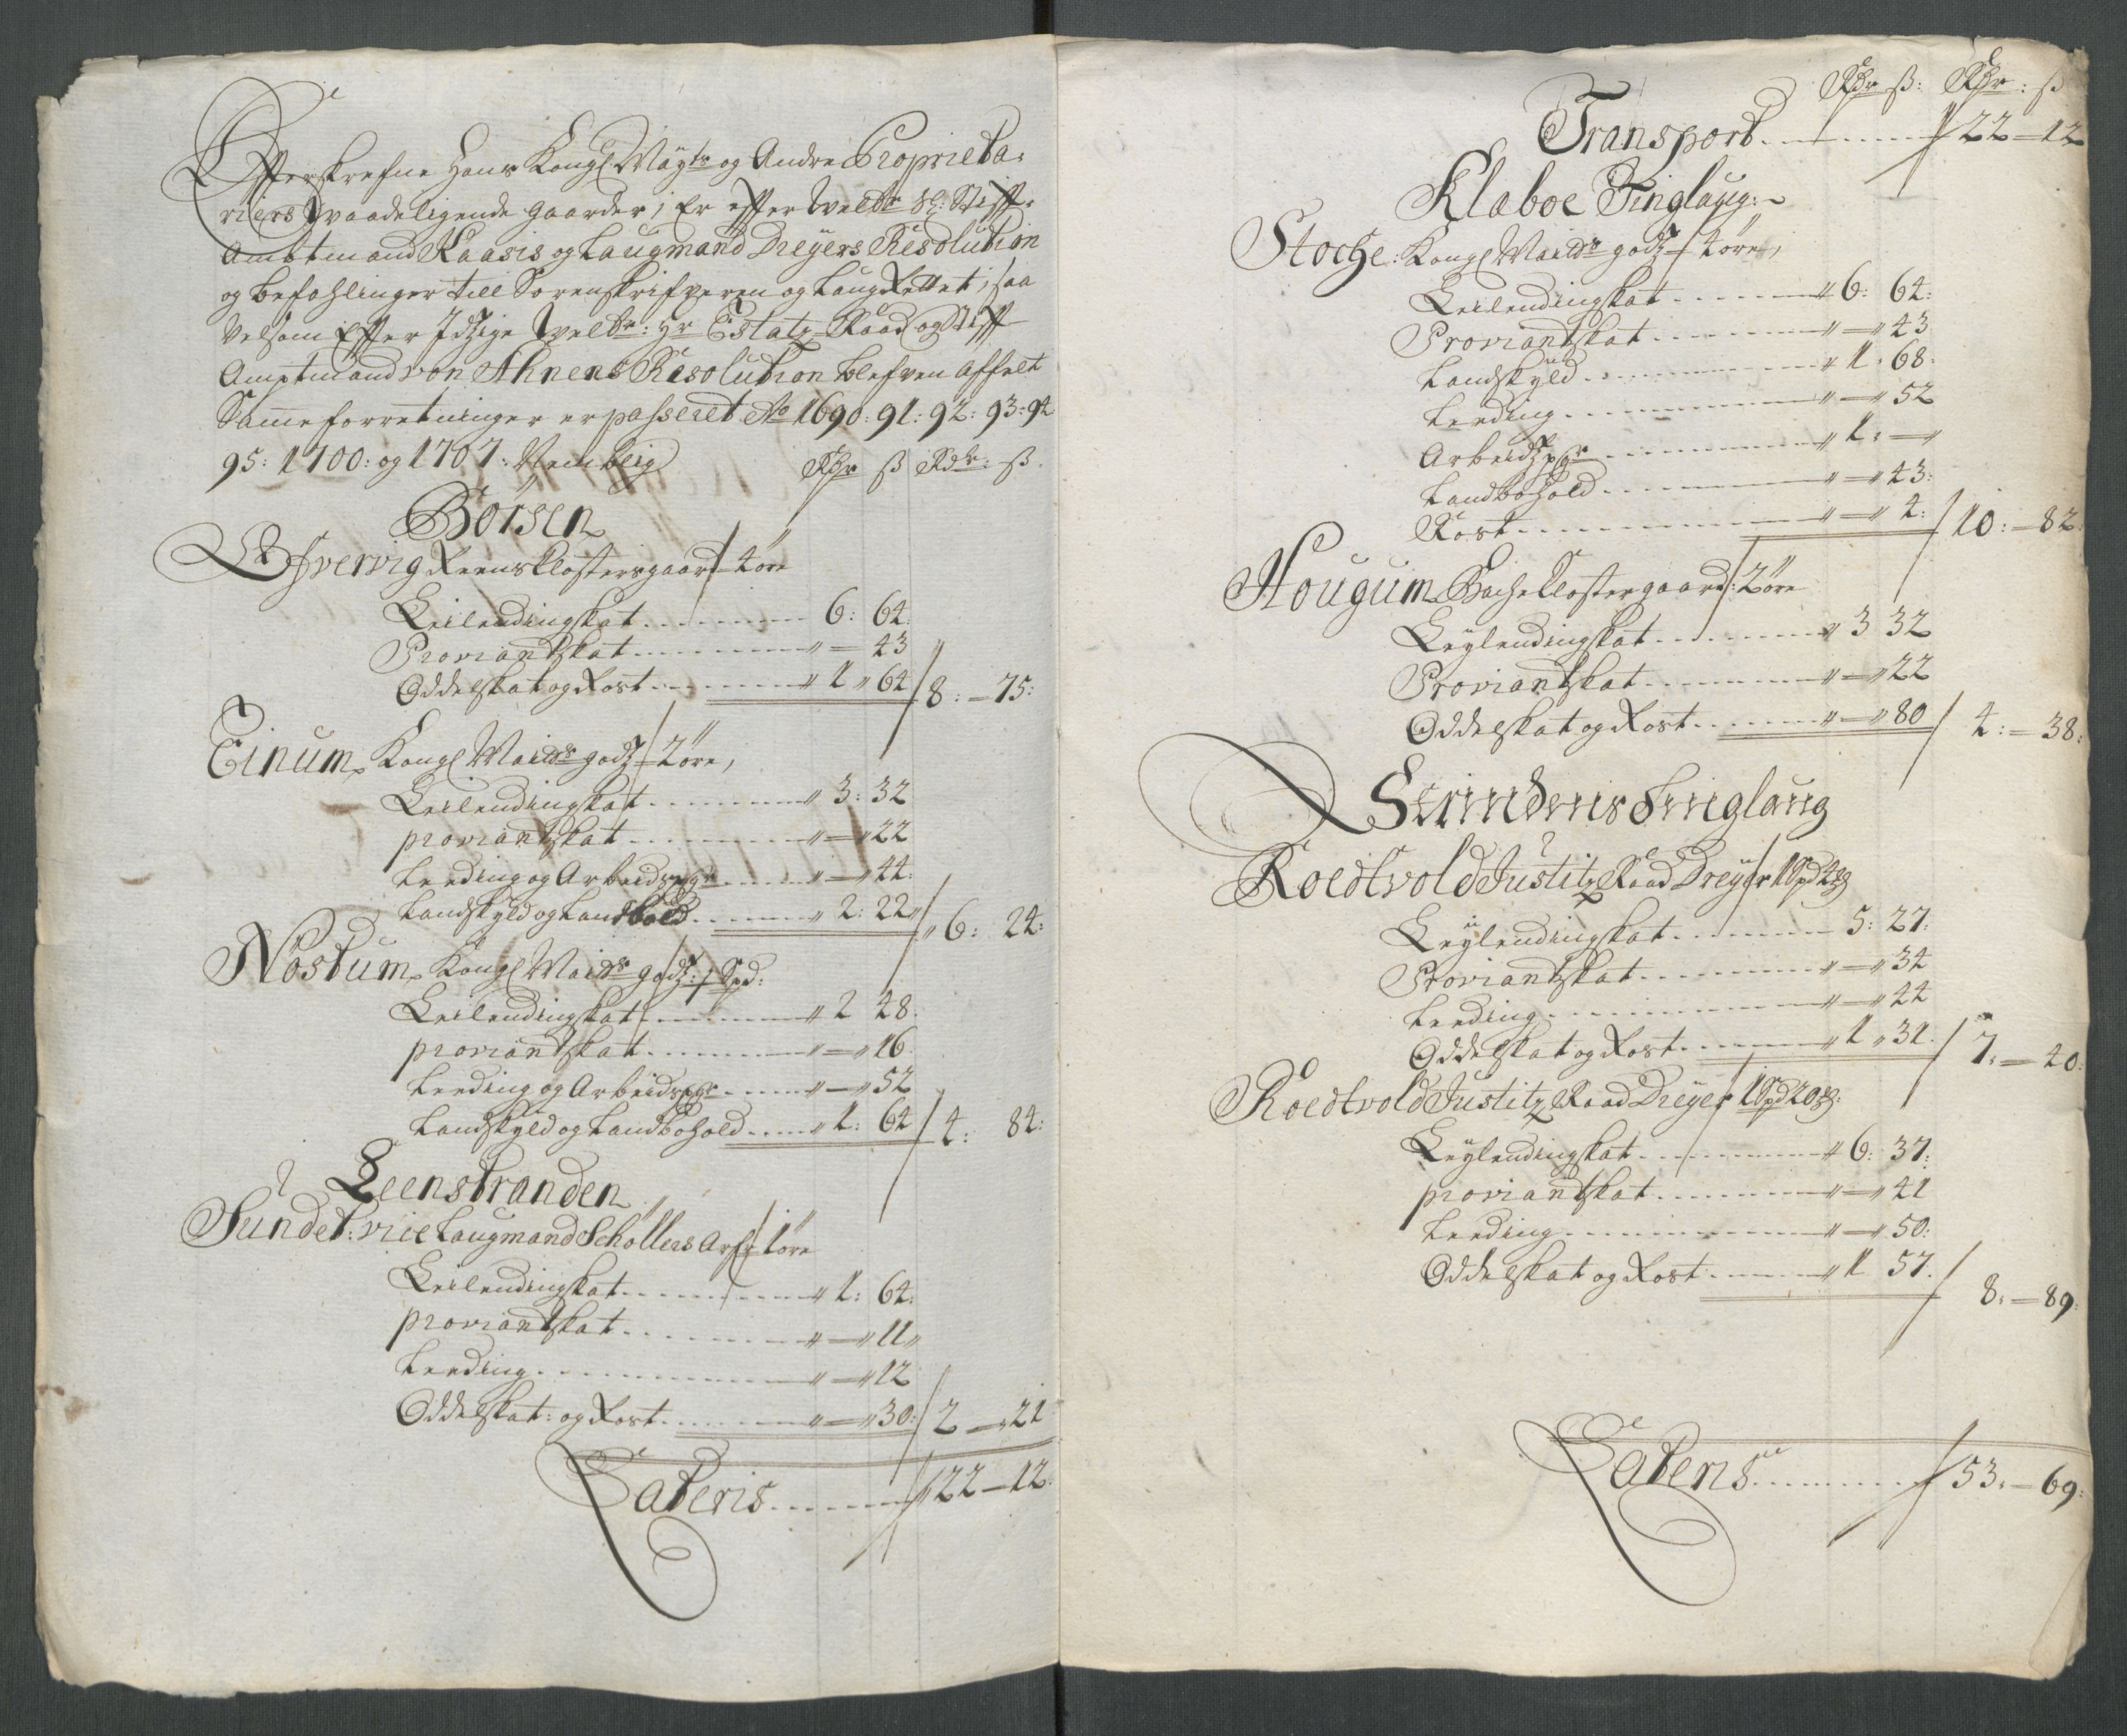 Effterskrefne Hans Kongl: Maÿts og Andre Proprieta,
riers Vvaadeligende gaarder, Er effter Welbr Sl: Stiffz
Ambtmand Kaasis og Laugmand Dreÿers Resolution
og befahlinger till Sorenskrifveren og LaugRettet, saa
velsom Effter Idzige Welbr: Hr Estatz Raad og Stiff
Amptmand von Ahnens Resolution blefven affelt
Samme forretninger er passeret Ao 1690: 91: 92: 93: 94
95: 1700: og 1707: Nemblig
Rdr ß Rdr: ß
Börsen
Reens Klostersgaard 4 öre
Leilendingskat 6: 64:
Proviantskat " — 43
Oddelskat og Rost " 1 " 64 8: — 75:
Einum Kongl Maidts godz — 2 öre,
Leilendingskat " 3: 32
proviantskat " — " 22
Leeding og Arbeidspgr " — " 44:
Landskÿld og Landbold " 2: 22 " 6: 24:
Nöstum Kongl Maidts godz: 1 Spd:
Leilendingskat " 2 48:
proviantskat " — " 16
Leeding og Arbeidspgr " — " 52
Landskÿld og Landbohold " 1: 64 4: 84:
Leenstranden
Sundet: vice Laugmand Schöllers Arfr 1 öre
Leilendingskat " 1: 64:
proviantskat " — " 11 "
Leeding " — " 12
Oddelskat: og Rost " — " 30: 2 — 21
Lateris 22 — 12:
Rdr ß: Rdr: ß
Transport 22 — 12
Klaboe Tinglaug:
Stoche: Kongl Maidts godz — 4 öre,
Leilendingskat " 6: 64:
Proviantskat " — " 43
Landskÿld " 1: 68:
Leeding " — " 52
Arbeidzpgr " 1: — "
Landbohold " — " 43:
Rost " — " 4: 10: — 82:
Hougum Bache Klostergaard: 2 öre
Leÿlendingskat " 3 32
Proviantskat " — " 22
Oddelskat og Rost " — " 80 4: — 38:
Strindens Tinglaug
Roedtvold Justitz Raad Dreÿer 1 Spd 4 mg
Leÿlendingskat 5: 27:
Proviantskat " — " 34
Leeding " — " 44
Oddelskat og Rost " 1 " 31: 7: — 40:
Roedtvold Justitz Raad Dreÿer 1 Spd 20 mg:
Leÿlendingskat " 6: 37:
proviantskat " — " 41
Leeding " — " 50:
Oddelskat og Rost " 1 57: 8: — 89:
Lateris 53: — 69: